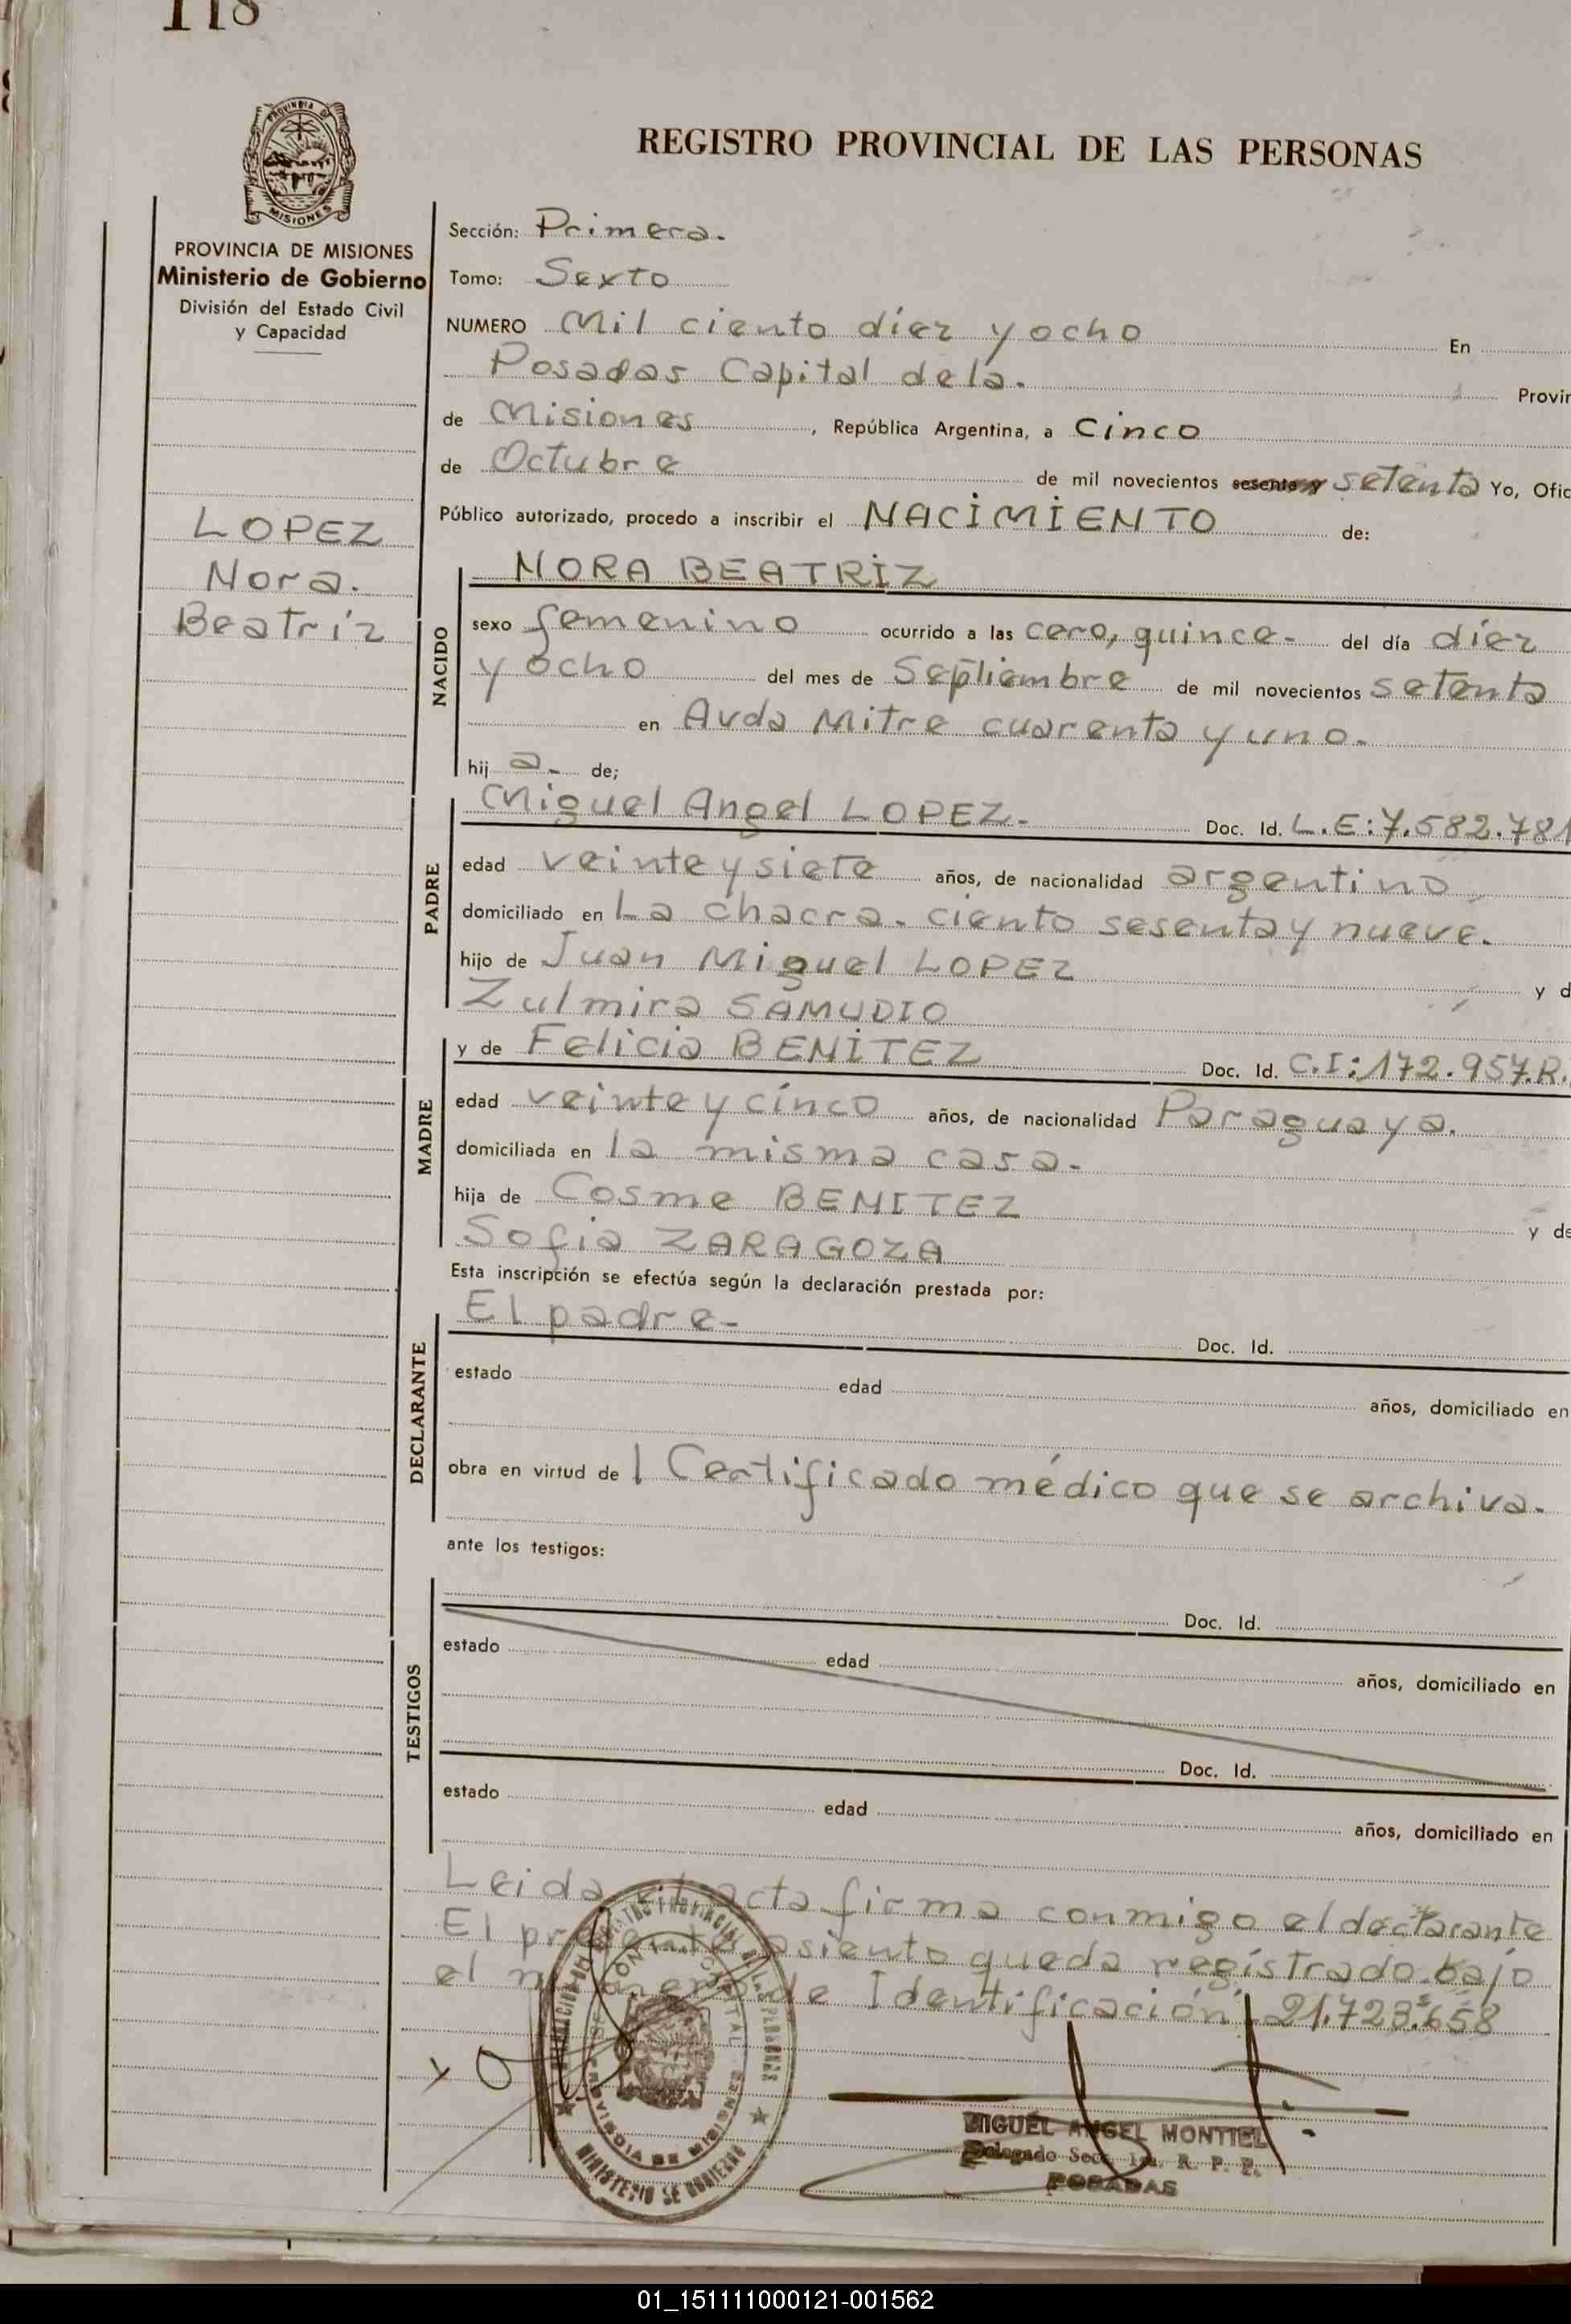 118
PROVINCIA DE
MISIONES
REGISTRO PROVINCIAL DE LAS PERSONAS
PROVINCIA DE MISIONES
Ministerio de Gobierno
División del Estado Civil
y Capacidad
LOPEZ
Nora.
Beatríz
Sección: Primera.
Tomo: Sexto
NUMERO Mil ciento diez y ocho En
Posadas Capital de la. Provin
de Misiones, República Argentina, a Cinco
de Octubre de mil novecientos sesenta y setenta Yo, Ofic
Público autorizado, procedo a inscribir el NACIMIENTO de:
NACIDO
NORA BEATRIZ
sexo femenino ocurrido a las cero, quince- del día díez
y ocho del mes de Septiembre de mil novecientos setenta
en Avda Mitre cuarenta y uno.
hij a. de;
PADRE
Miguel Angel LOPEZ. Doc. Id. L.E:7.582.781
edad veinte y siete años, de nacionalidad argentino
domiciliado en La chacra. ciento sesenta y nueve.
hijo de Juan Miguel LOPEZ y d
Zulmira SAMUDIO
MADRE
y de Felicia BENITEZ Doc. Id. C.I:172.957.R.
edad veinte y cinco años, de nacionalidad Paraguaya.
domiciliada en la misma casa.
hija de Cosme BENITEZ y de
Sofia ZARAGOZA
Esta inscripción se efectúa según la declaración prestada por:
DECLARANTE
El padre- Doc. Id.
estado edad años, domiciliado en
obra en virtud de l Certificado médico que se archiva.
ante los testigos:
TESTIGOS
Doc. Id.
estado edad años, domiciliado en
Doc. Id.
estado edad años, domiciliado en
Leida el acta firma conmigo el declarante
El presente asiento queda registrado bajo
el numero de Identificación 21.723.658
PROVINCIA DE MISIONES
MINISTERIO DE GOBIERNO
MIGUEL ANGEL MONTIEL
Delegado Secc. 1a. R. P. P.
POSADAS
01_151111000121-001562